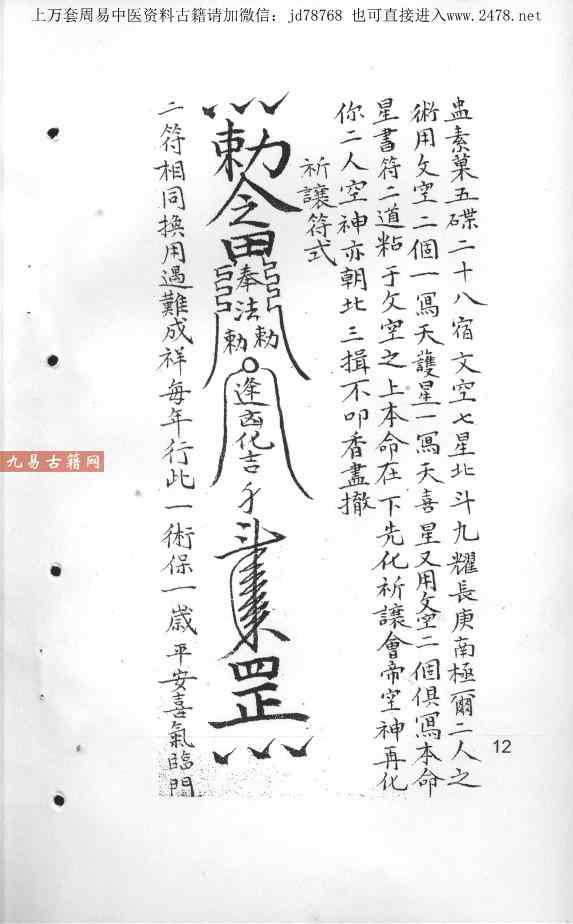 上万套周易中医资料古籍请加微信：jd78768 也可直接进入www.2478.net
盅素菓五碟二十八宿文空七星北斗九耀長庚南極爾二人之
術用文空二個一寫天護星一寫天喜星又用文空二個俱寫本命
星書符二道粘于文空之上本命在下先化祈讓會帝空神再化
你二人空神亦朝北三揖不叩香盡撤
祈讓符式
勅令
奉法
勅勅
逢凶化吉
罡
二符相同換用遇難成祥每年行此一術保一歲平安喜氣臨門
12
九易古籍网